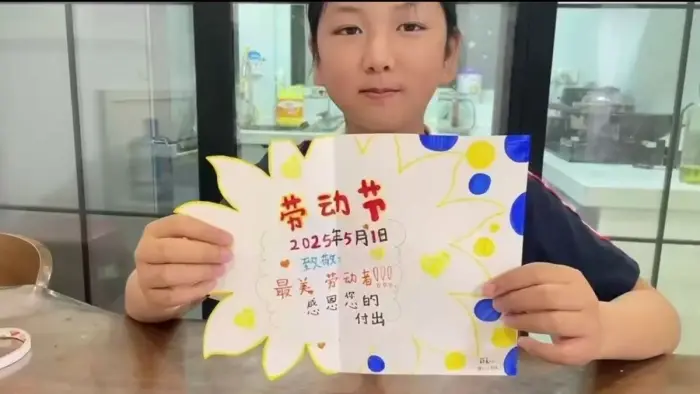 劳动节
2025年5月1日
致敬:
最美劳动者!!!
感恩您的
付出